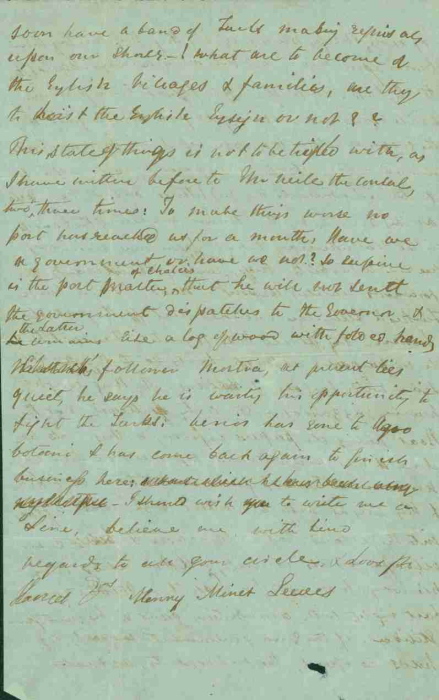 soon have a band of Turks making reprisals
upon our shores—! What are to become of
the English Villages & families, are they
to hoist the English Ensign or not??
This state of things is not to be trifled with, as
I have written before to Mr Neile the consul,
two, three times: To make things worse no
post has reached us for a month, Have we
a government or have we not? So supine
is the post master of Chalcis, that he will not send
the government dispatches to the Governor &
the latter remains like a log of wood with folded hands
follower at present lies
quiet, he says he is waiting his opportunity to
fight the Turks: has gone to
& has come back again to finish
business here
I should wish you to write me a
line, believe me with kind
regards to all your circle,
yrs Henry Minet Leeves